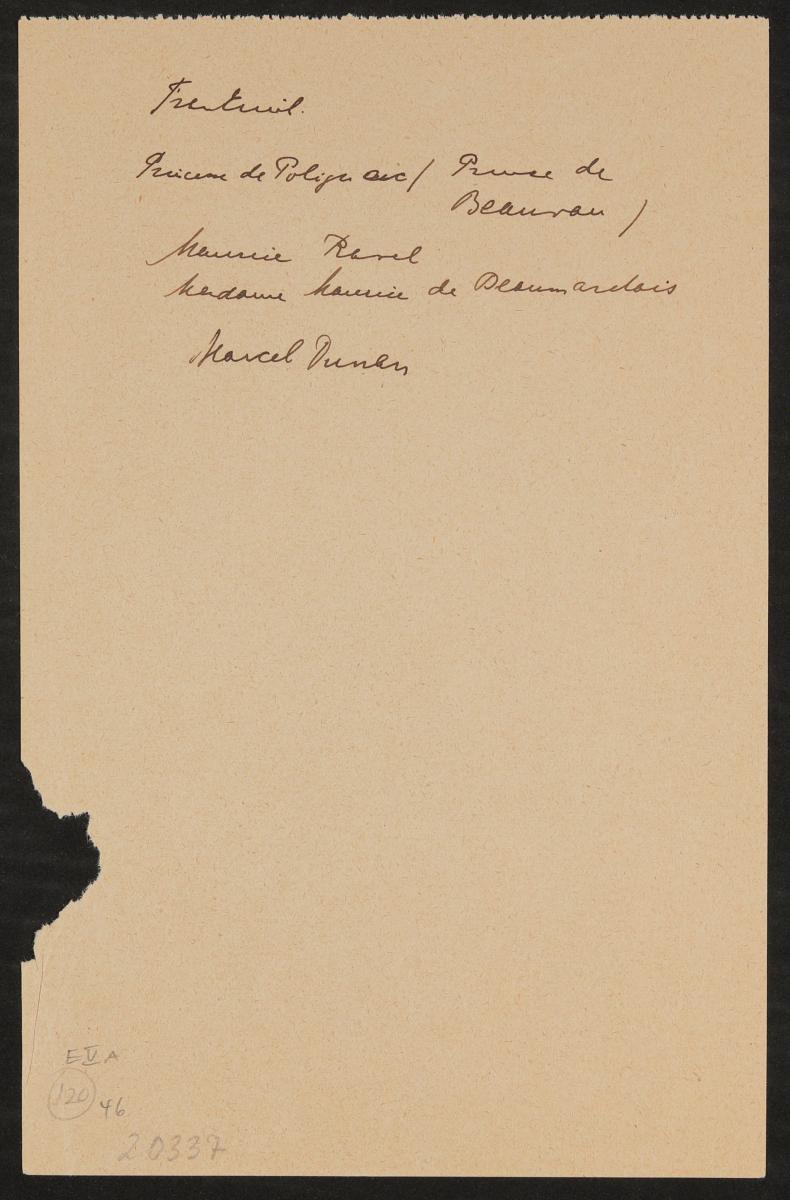 Princesse de Polignac / Prince de
Beauvau /
Maurice Ravel
Madame Maurice de Beaumarchais
Marcel Dunan
E V A
120 46
20337